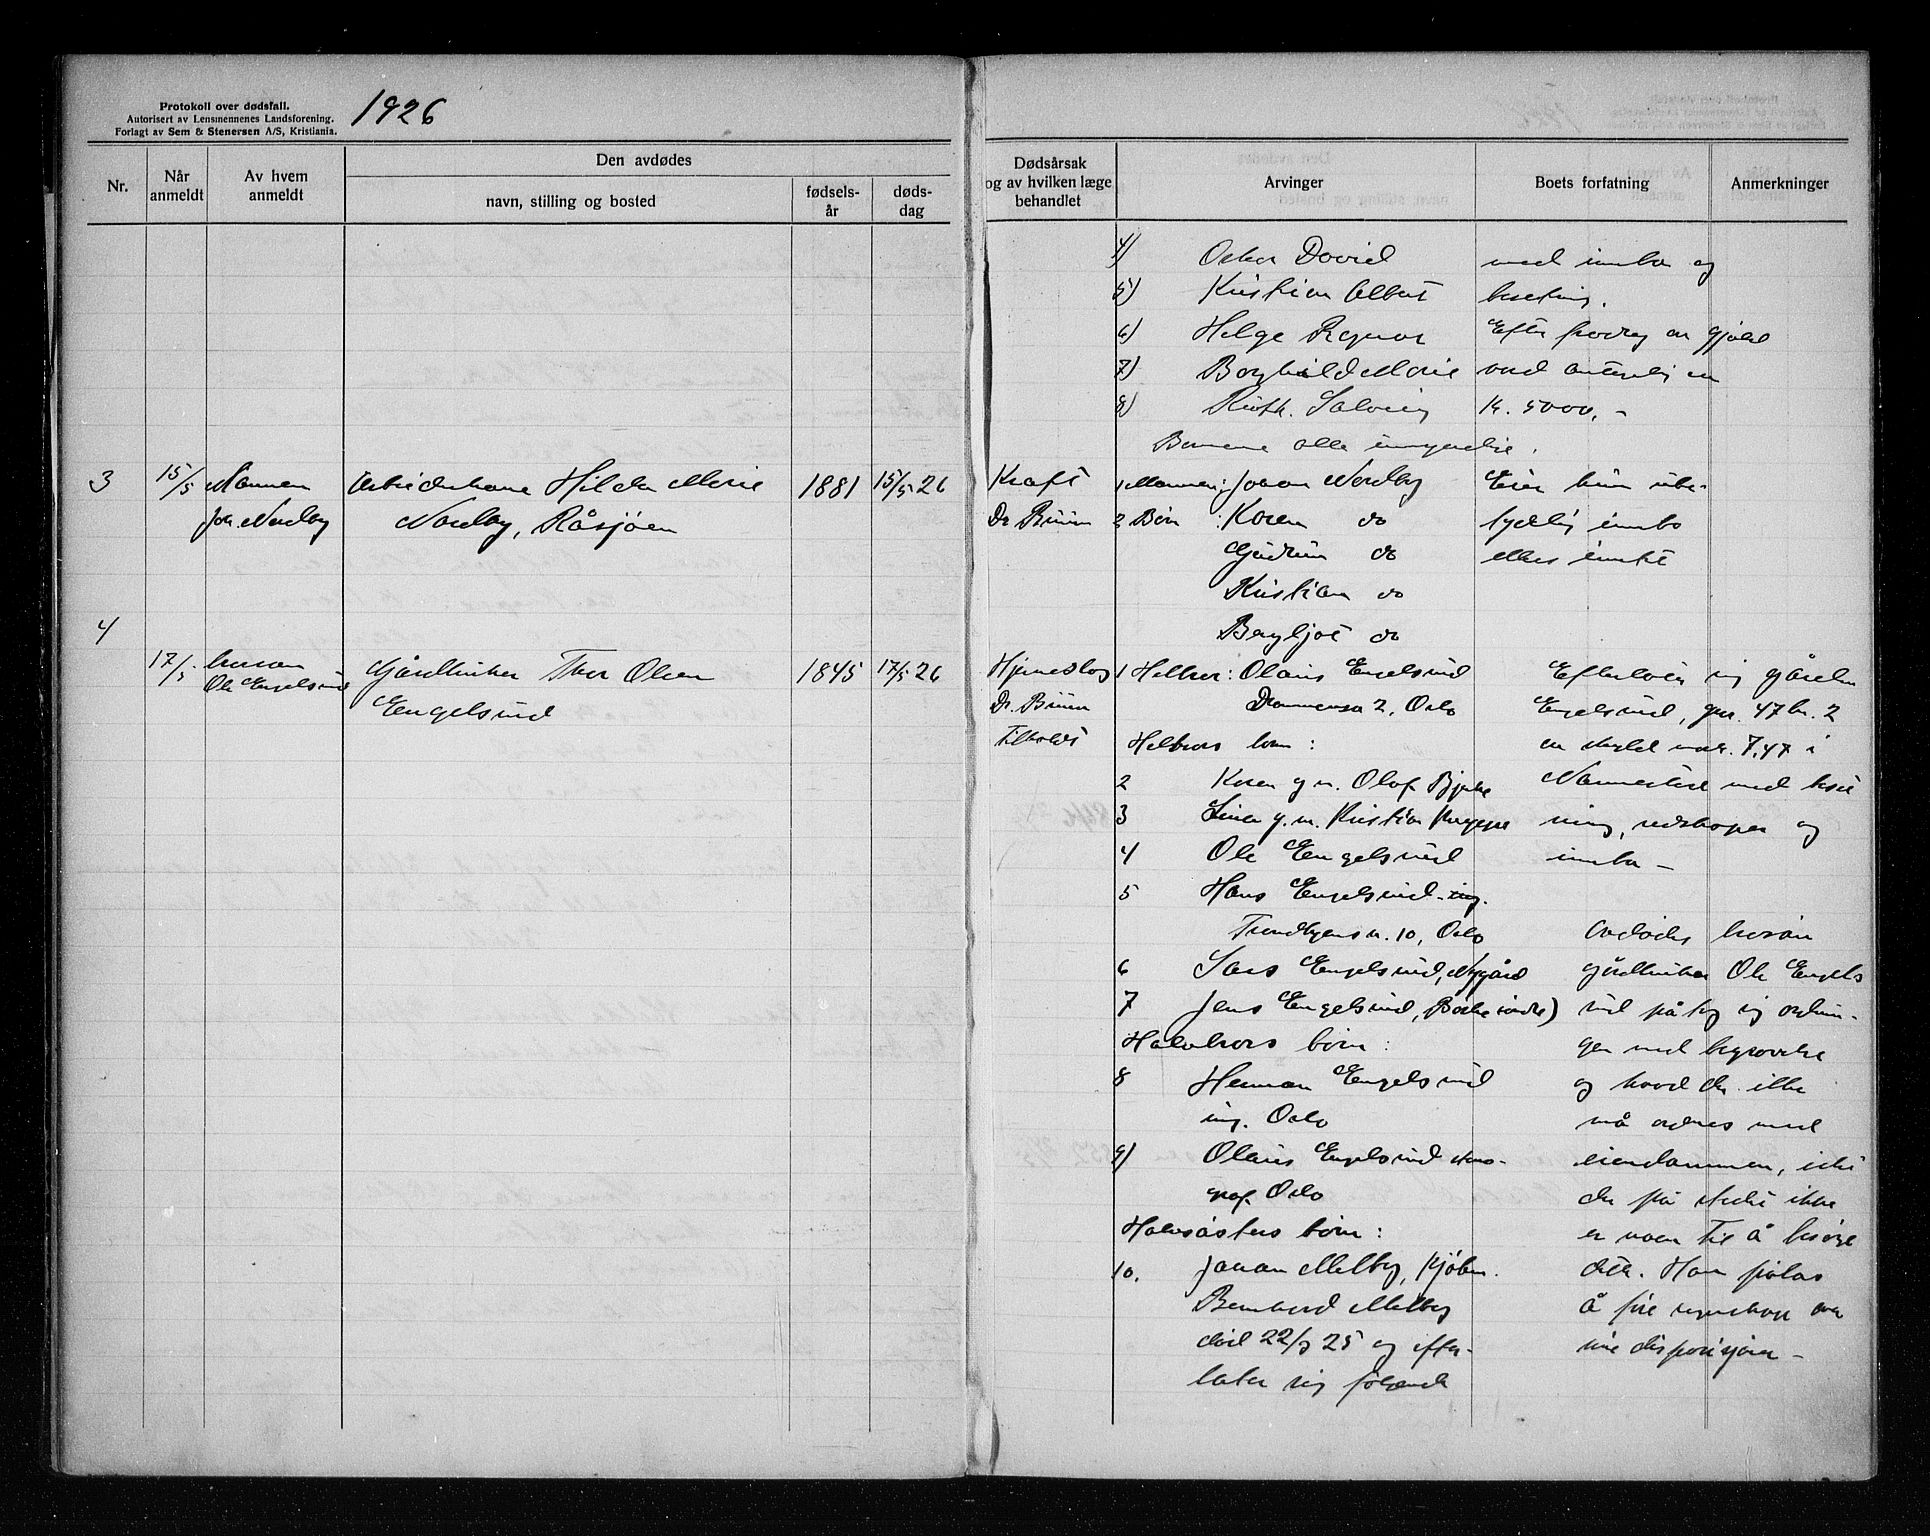 Protokoll over dødsfall.
Autorisert av Lensmennenes Landsforening.
Forlagt av Sem & Stenersen A/S, Kristiania.
1926
Nr.
Når anmeldt
Av hvem anmeldt
Den avdødes
navn, stilling og bosted
fødsels-år
døds-dag
Dødsårsak og av hvilken læge behandlet
Arvinger
Boets forfatning
Anmerkninger
4) Oskar David
5) Kristian Albert
6) Helge Ragnar
7) Borghild Marie
8) Ruth Solveig
Barnene alle umyndige.
med innbo og
besetning.
Efter fradrag av gjæld
kr. 5000,-
3
15/5
Mannen
Joh. Nordby
Arbeiderkone Hilda Marie
Nordby, Råsjøen
1881
15/5 26
Kraft
Dr. Bruun
1 Mannen: Johan Nordby
2 Børn: Karen do
Gudrun do
Kristian do
Bergljot do
Eier kun ube-
tydelig innbo
ellers intet
4
17/5
Ole Engelsrud
Gårdbruker Thor Olsen
Engelsrud
1845
17/5 26
Hjerneslag
Dr. Bruun
Tilkaldt
1 Helbror: Olaus Engelsrud
Drammensv 2, Oslo
Helbrors børn:
2 Karen g. m. Olaf Bjerke
3 Lina g. m. Kristian
4 Ole Engelsrud
5 Hans Engelsrud
10, Oslo
6 Lars Engelsrud, Nygård
7 Jens Engelsrud,
Halvbrors børn:
8 Herman Engelsrud
ing. Oslo
9) Olaus Engelsrud
Oslo
Halvsøsters børn:
10. Johan Melby, Kjøbm.
Bernhard Melby
død 22/9 25 og efter-
later sig følgende
Efterlater sig gården
Engelsrud, gnr. 47 br. 2
av skyld mark 7,47 i
Nannestad med beset
ning, redskaper og
innbo -
Avdødes brorsøn
gårdbruker Ole Engels
rud påtog sig ordnin-
gen med begravelse
og hvad der ellers
må ordnes med
eiendommen, idet
der på stedet ikke
er noen til å besørge
dette. Han pålas
å føre regnskap over
sine disposisjoner -